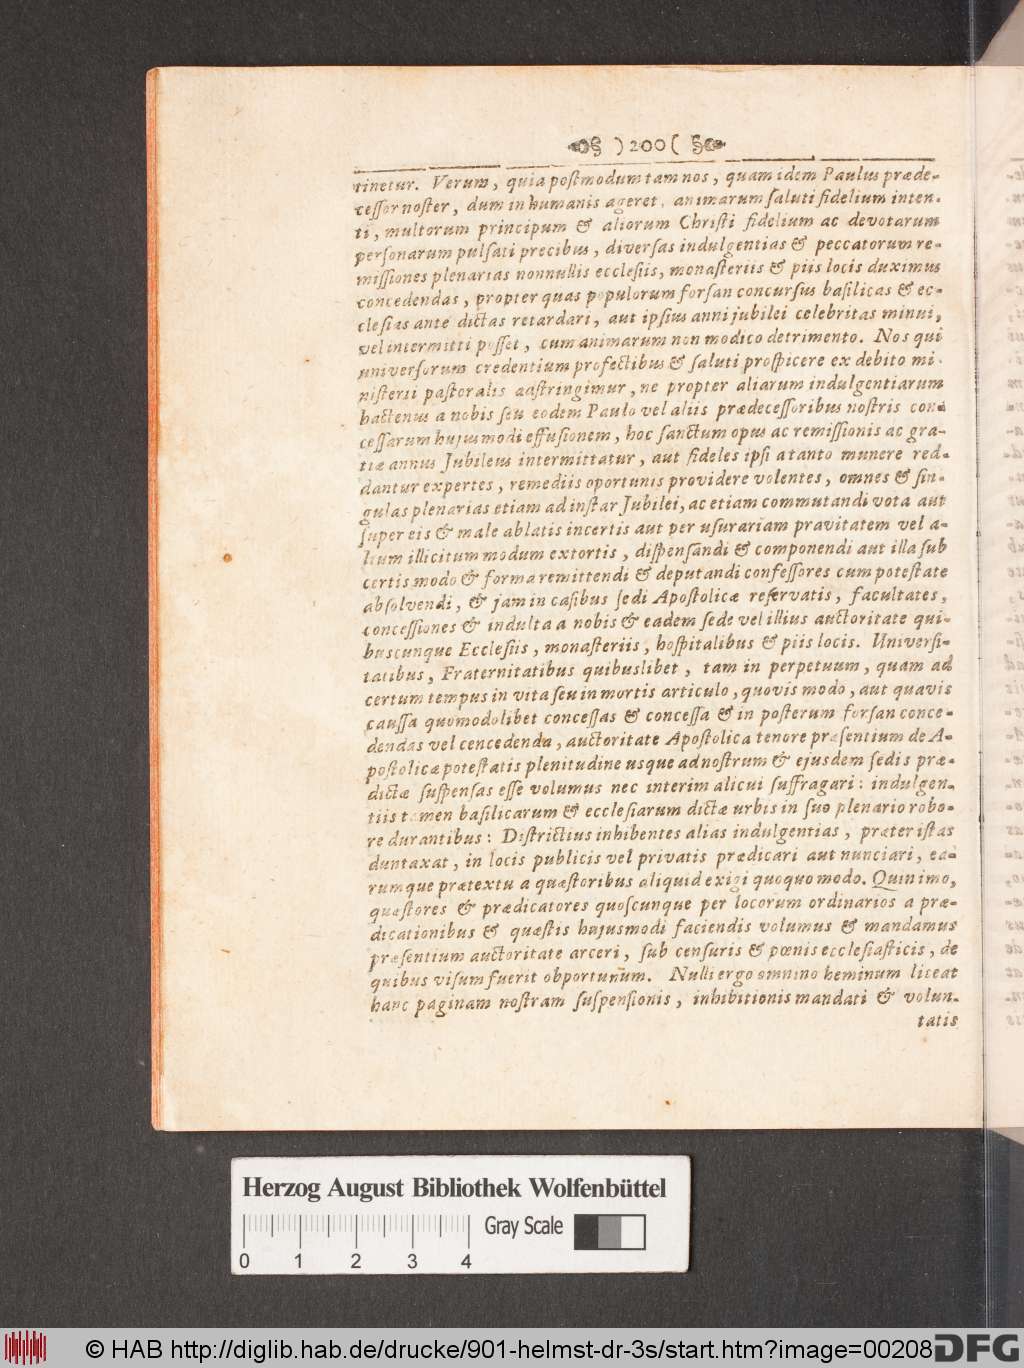 )200(
tinetur. Verum, quia postmodum tam nos, quam idem Paulus præde-
cessor noster, dum in humanis ageret, animarum saluti fidelium inten-
ti, multorum principum & aliorum Christi fidelium ac devotarum
personarum pulsati precibus, diversas indulgentias & peccatorum re-
missiones plenarias nonnullis ecclesiis, monasteriis & piis locis duximus
concedendas, propter quas populorum forsan concursus basilicas & ec-
clesias ante dictas retardari, aut ipsius anni jubilei celebritas minui,
vel intermitti posset, cum animarum non modico detrimento. Nos qui
universorum credentium profectibus & saluti prospicere ex debito mi-
nisterii pastoralis adstringimur, ne propter aliarum indulgentiarum
hactenus a nobis seu eodem Paulo vel aliis prædecessoribus nostris con-
cessarum hujusmodi effusionem, hoc sanctum opus ac remissionis ac gra-
tiæ annus Jubileus intermittatur, aut fideles ipsi a tanto munere red-
dantur expertes, remediis oportunis providere volentes, omnes & sin-
gulas plenarias etiam ad instar Jubilei, ac etiam commutandi vota aut
super eis & male ablatis incertis aut per usurariam pravitatem vel a-
lium illicitum modum extortis, dispensandi & componendi aut illa sub
certis modo & forma remittendi & deputandi confessores cum potestate
absolvendi, & jam in casibus sedi Apostolicæ reservatis, facultates,
concessiones & indulta a nobis & eadem sede vel illius auctoritate qui-
buscunque Ecclesiis, monasteriis, hospitalibus & piis locis. Universi-
tatibus, Fraternitatibus quibuslibet, tam in perpetuum, quam ad
certum tempus in vita seu in mortis articulo, quovis modo, aut quavis
caussa quomodolibet concessas & concessa & in posterum forsan conce-
dendas vel cencedenda, auctoritate Apostolica tenore præsentium de A-
postolicæ potestatis plenitudine usque ad nostrum & ejusdem sedis præ-
dictæ suspensas esse volumus nec interim alicui suffragari: indulgen-
tiis tamen basilicarum & ecclesiarum dictæ urbis in suo plenario robo-
re durantibus: Districtius inhibentes alias indulgentias, præter istas
duntaxat, in locis publicis vel privatis prædicari aut nunciari, ea-
rumque prætextu a quæstoribus aliquid exigi quoquo modo. Quinimo,
quæstores & prædicatores quoscunque per locorum ordinarios a præ-
dicationibus & quæstis hujusmodi faciendis volumus & mandamus
præsentium auctoritate arceri, sub censuris & pœnis ecclesiasticis, de
quibus visum fuerit obportunum. Nulli ergo omnino heminum liceat
hanc paginam nostram suspensionis, inhibitionis mandati & volun-
tatis
Herzog August Bibliothek Wolfenbüttel
Gray Scale
0 1 2 3 4
© HAB http://diglib.hab.de/drucke/901-helmst-dr-3s/start.htm?image=00208
DFG